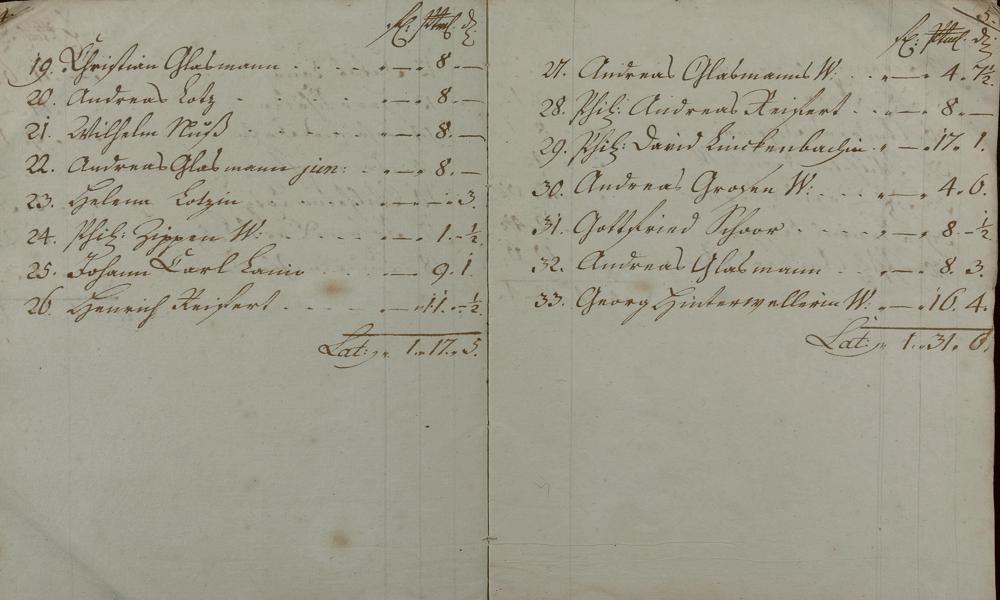 fl: Alb. d.
19. Christian Glasmann . . . . „ — „ 8. —
20. Andreas Lotz . . . . „ — „ 8. —
21. Wilhelm Nuß . . . . „ — „ 8. —
22. Andreas Glasmann jun: . . „ — „ 8. —
23. Helena Lotzin . . . . „ — „ — „ 3.
24. Phil: Zippen W: . . . . „ — „ 1. „ ½
25. Johann Carl Lanio . . . „ — 9. 1.
26. Henrich Reifert . . . . „ — „ 11. „ ½.
Lat: „ 1. „ 17. „ 5.
5.
fl: Alb. d.
27. Andreas Glasmanns W. . . „ — „ 4. 7½.
28. Phil: Andreas Reifert . . „ — „ 8 „ —
29. Phil: David Linckenbachin . „ — „ 17. 1.
30. Andreas Grosen W: . . . „ — „ 4. 6.
31. Gottfried Schoor . . . . „ — „ 8 „ ½
32. Andreas Glasmann . . „ — „ 8. 3.
33. Georg Hinterwellerin W: „ — „ 16. 4.
Lat: „ 1. „ 31. 6.